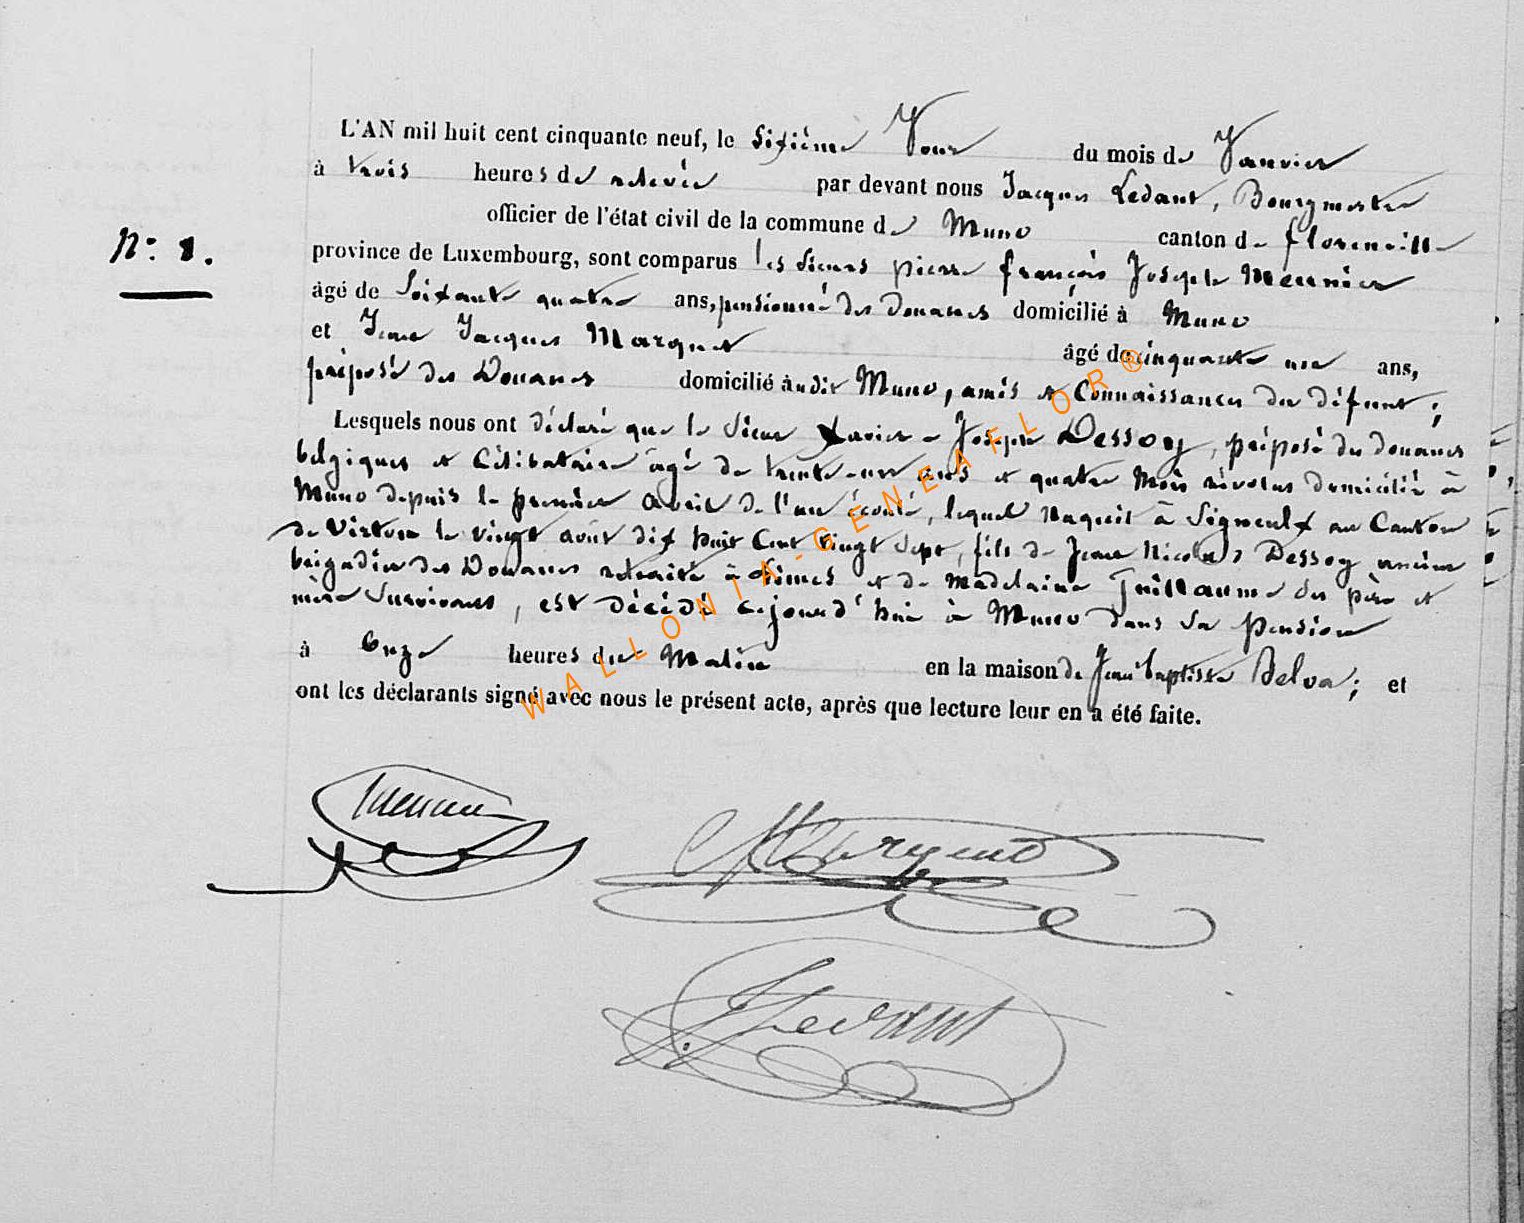 L'AN mil huit cent cinquante neuf, le Sixième Jour du mois de Janvier
à trois heures de relevée par devant nous Jacques Ledant, Bourgmestre
officier de l'état civil de la commune de Muno canton de florenville
N: 1.
province de Luxembourg, sont comparus les Sieurs pierre françois Joseph Meunier
âgé de Soixante quatre ans, pensionné des douanes domicilié à Muno
et Jean Jacques Marquet âgé de cinquante un ans,
préposé des Douanes domicilié à udit Muno, amis et Connaissances du défunt;
Lesquels nous ont déclaré que le Sieur Xavier Joseph Dessoy, préposé des douanes
belgiques et Célibataire âgé de trente-un ans et quatre Mois révolus domicilié à
Muno depuis le premier avril de l'an écoulé, lequel Naquit à Signeulx au Canton
de Virton le vingt août dix huit Cent vingt Sept, fils de Jean Nicolas Dessoy ancien
brigadier des Douanes retraité à et de Madelaine Guillaume Ses père et
mère Survivans, est décédé cejourd'hui à Muno dans Sa pension
à Onze heures du Matin en la maison de Jean baptiste Belva; et
ont les déclarants signé avec nous le présent acte, après que lecture leur en a été faite.
Meunier
Marquet
J. Ledant
WALLONIA-GENEAFLOR®